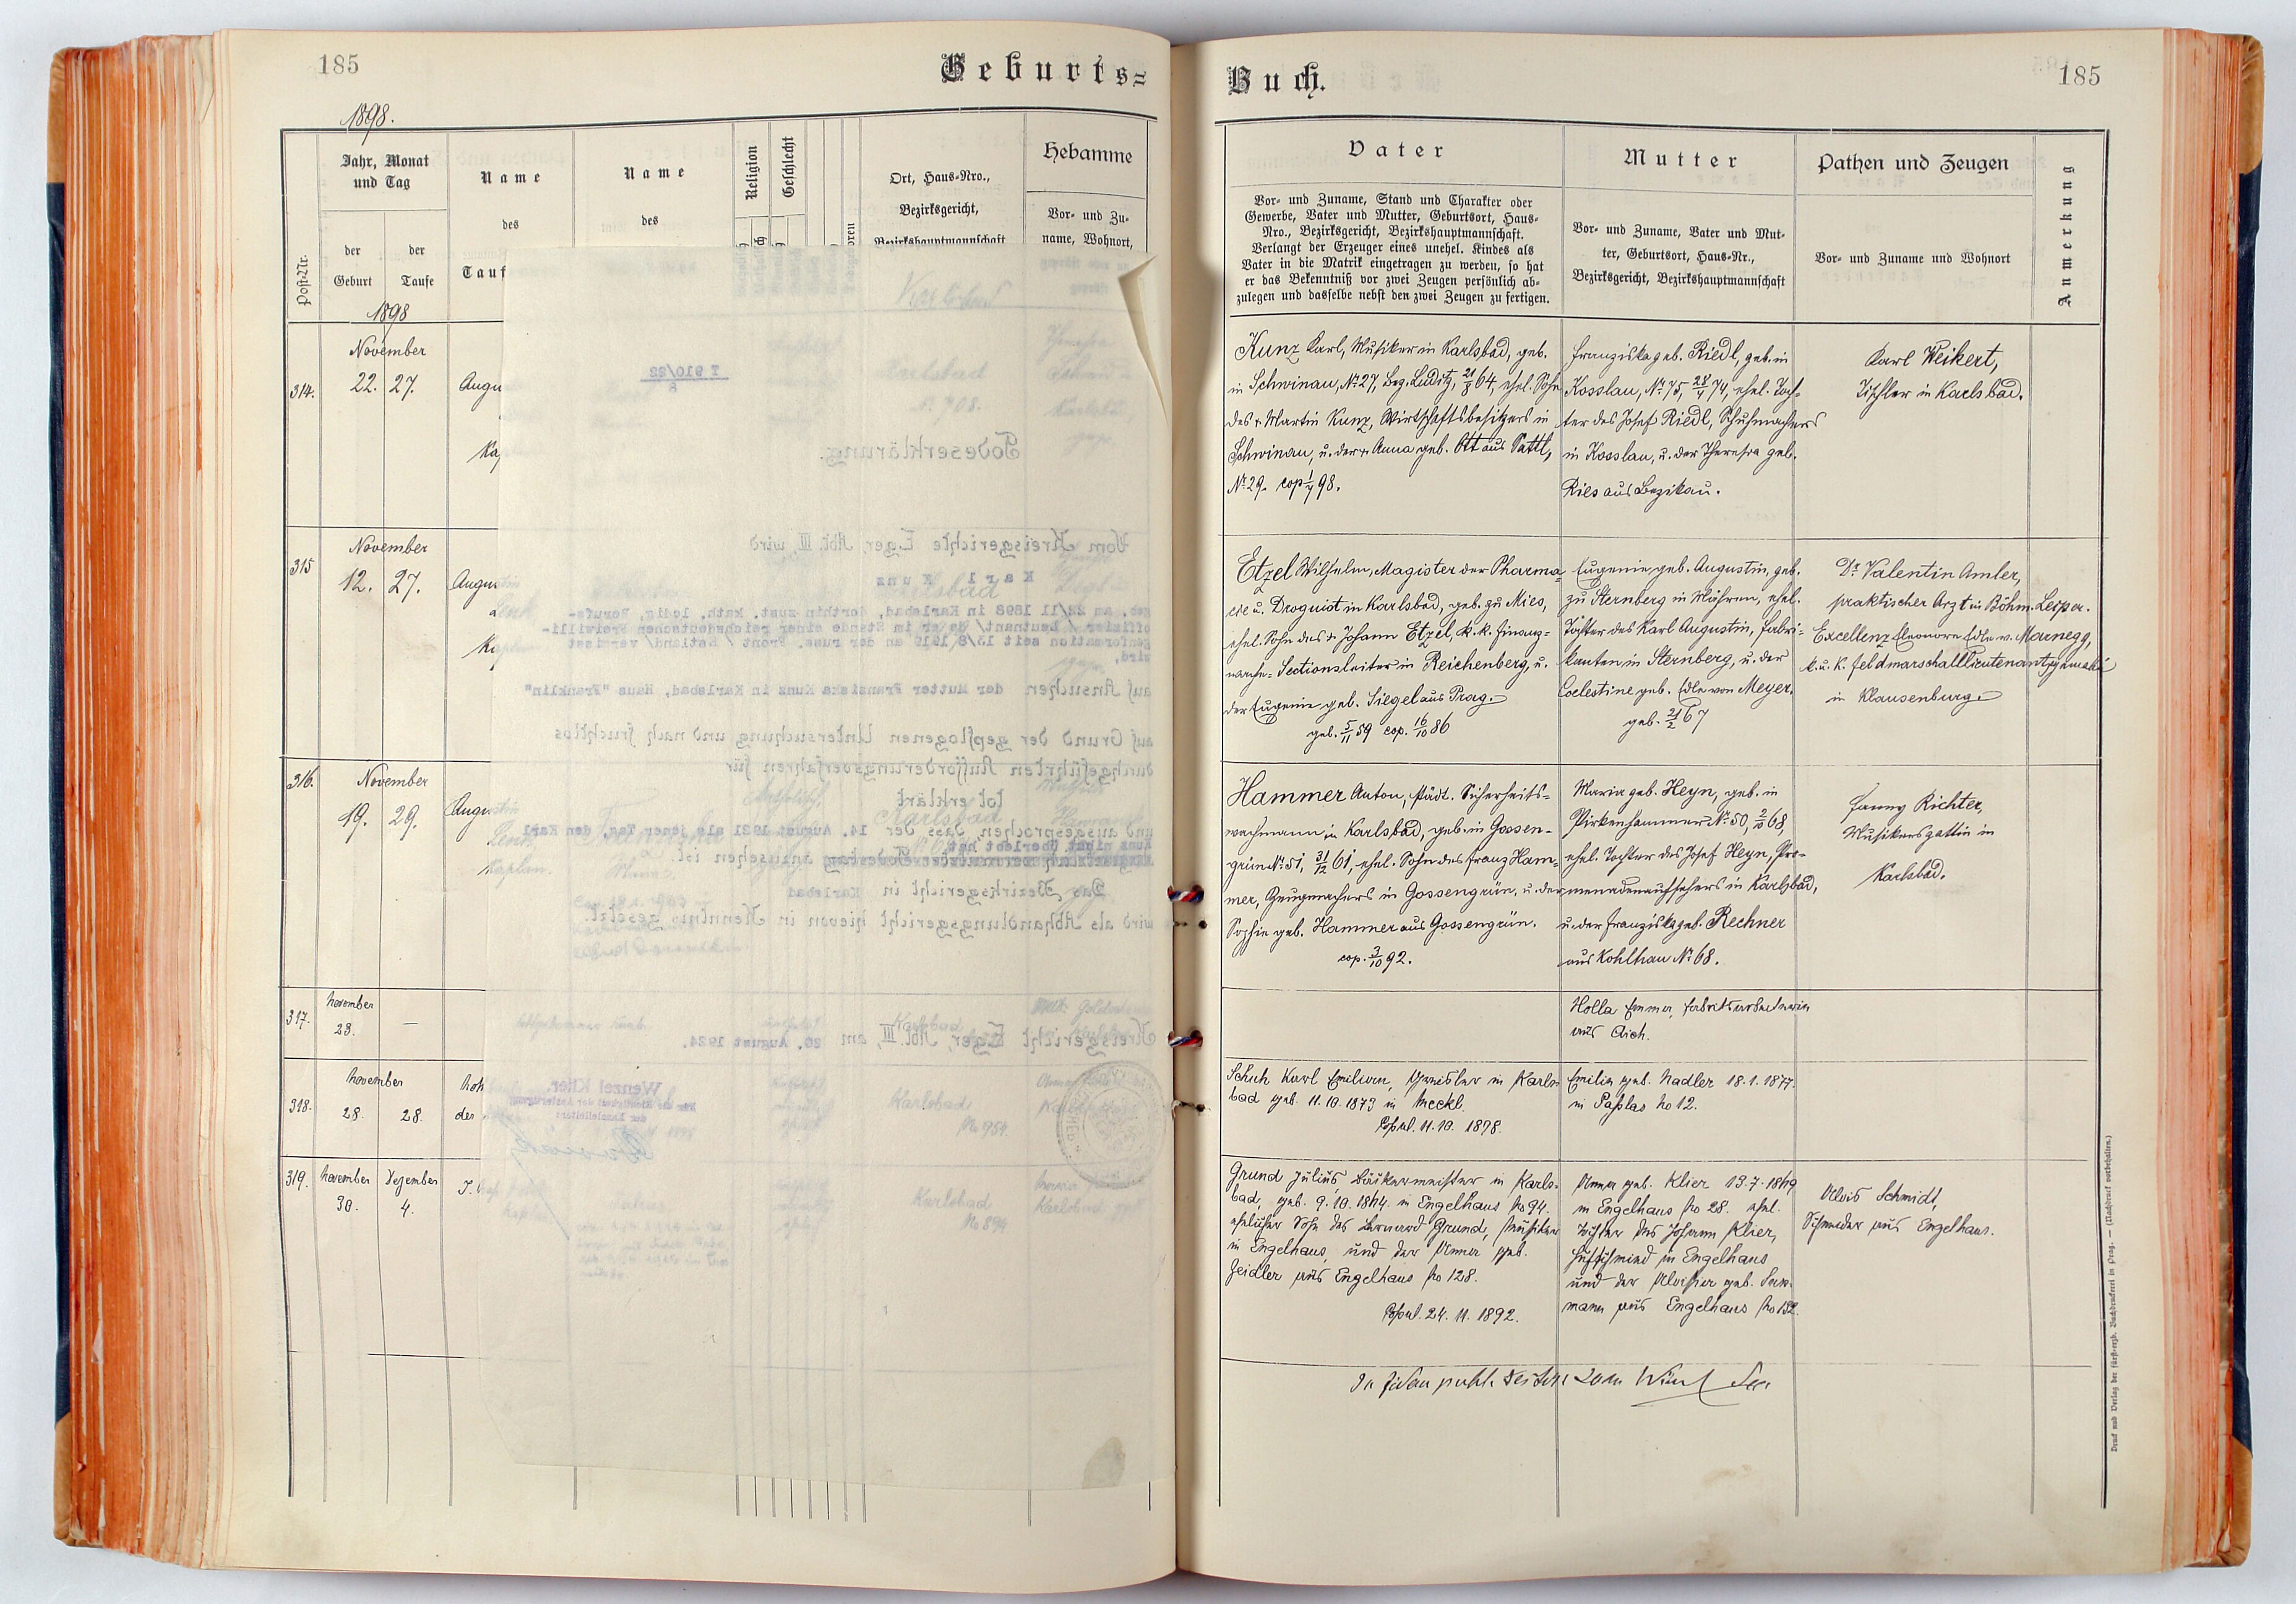 185
Geburts=
1898.
Post-Nr.
Jahr, Monat
und Tag
der
Geburt
der
Taufe
Name
des
Tauf
Name
des
Religion
Geschlecht
Ort, Haus-Nro.,
Bezirksgericht,
Bezirkshauptmannschaft
Hebamme
Vor- und Zu-
name, Wohnort,
1898
314.
November
22. 27.
Augu
315
November
12. 27.
316.
November
19. 29.
317.
November
28. —
318.
November
28. 28.
319.
November Dezember
30. 4.
Karlsbad
Karlsbad
No 954.
Karlsbad
No 894
T 910/22
8
Todeserklärung.
Vom Kreisgerichte Eger, Abt. III, wird
Karl Kunz
geb. am 22/11 1898 in Karlsbad, dorthin zust. kath. ledig, Berufs-
offizier / Leutnant/ da er im Stande einer reichsdeutschen Freiwilli-
genformation seit 13/8 1919 an der russ. Front / Estland/ vermisst
wird,
auf Ansuchen der Mutter Franziska Kunz in Karlsbad, Haus "Franklin"
auf Grund der gepflogenen Untersuchung und nach fruchtlos
durchgeführten Aufforderungsverfahren für
tot erklärt
und ausgesprochen, dass der 14. August 1921 als jener Tag, den Karl
Kunz nicht überlebt hat
anzusehen ist.
Das Bezirksgericht in Karlsbad
wird als Abhandlungsgericht hievon in Kenntnis gesetzt.
Kreisgericht Eger, Abt. III, am 26. August 1924.
Wenzel Klier.
Für die Richtigkeit der Ausfertigung
der Kanzleileiter:
Buch.
185
Vater
Vor- und Zuname, Stand und Charakter oder
Gewerbe, Vater und Mutter, Geburtsort, Haus-
Nro., Bezirksgericht, Bezirkshauptmannschaft.
Verlangt der Erzeuger eines unehel. Kindes als
Vater in die Matrik eingetragen zu werden, so hat
er das Bekenntniß vor zwei Zeugen persönlich ab-
zulegen und dasselbe nebst den zwei Zeugen zu fertigen.
Mutter
Vor- und Zuname, Vater und Mut-
ter, Geburtsort, Haus-Nr.,
Bezirksgericht, Bezirkshauptmannschaft
Pathen und Zeugen
Vor- und Zuname und Wohnort
Anmerkung
Kunz Karl, Musiker in Karlsbad, geb.
in Schwinau, Nr. 27, Bez. Luditz, 21/8 64, ehel. Sohn
des + Martin Kunz, Wirtschaftsbesitzers in
Schwinau, u. der + Anna geb. Ott aus Sattl,
Nr. 29. cop 1/7 98.
Franziska geb. Riedl, geb. in
Kosslau, Nr. 75, 28/4 74, ehel. Toch-
ter des Josef Riedl, Schuhmachers
in Kosslau, u. der Theresia geb.
Ries aus Bezikau.
Karl Weikert,
Tischler in Karlsbad.
Etzel Wilhelm, Magister der Pharma-
cie u. Droguist in Karlsbad, geb. zu Mies,
ehel. Sohn des + Johann Etzel, k. k. Finanz-
wache-Sectionsleiter in Reichenberg, u.
der Eugenie geb. Siegel aus Prag.
geb. 5/11 59 cop. 16/10 86
Eugenie geb. Augustin, geb.
zu Sternberg in Mähren, ehel.
Tochter des Karl Augustin, Fabri-
kanten in Sternberg, u. der
Coelestine geb. Edle von Meyer.
geb. 21/2 67
Dr. Valentin Amler,
praktischer Arzt in Böhm. Leipa.
Excellenz Eleonore Edle v.
k. u. k. Feldmarschalllieutenantsgemalin
in Klausenburg.
Hammer Anton, städt. Sicherheits-
wachmann in Karlsbad, geb. in Gossen-
grün Nr. 51, 31/12 61, ehel. Sohn des Franz Ham-
mer, Zeugmachers in Gossengrün, u. der
Sophie geb. Hammer aus Gossengrün.
cop. 3/10 92.
Maria geb. Heyn, geb. in
Pirkenhammer Nr. 50, 2/10 68,
ehel. Tochter des Josef Heyn, Pro-
menadenaufsehers in Karlsbad,
u. der Franziska geb. Rechner
aus Kohlhau Nr. 68.
Fanny Richter,
Musikersgattin in
Karlsbad.
Holla Emma, Fabriksarbeiterin
aus Aich.
Schuh Karl Emilian, in Karls-
bad geb. 11.10.1873 in Meckl.
Copul. 11.10. 1898.
Emilie geb. Nadler 18.1.1877.
in Paßlas No 12.
Grund Julius, Bäckermeister in Karls-
bad, geb. 9.10.1864 in Engelhaus No 94.
ehelicher Sohn des Bernard Grund, Musiker
in Engelhaus, und der Anna geb.
Zeidler aus Engelhaus No 128.
Copul. 24. 11. 1892.
Anna geb. Klier 13.7.1869
in Engelhaus No 28. ehel.
Tochter des Johann Klier,
Hufschmied in Engelhaus
und der Aloisia geb.
mann aus Engelhaus No 132.
Alois Schmidt,
Schneider aus Engelhaus.
Druck und Verlag der fürst-erzb. Buchdruckerei in Prag. — (Nachdruck vorbehalten.)